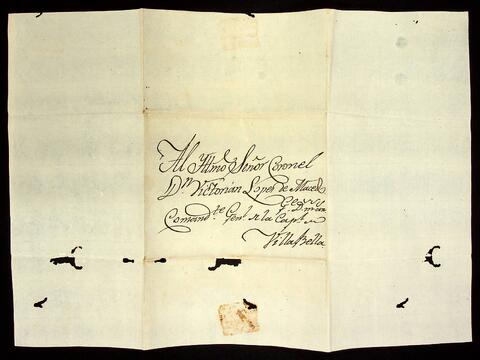 Al Illmo Señor Coronel
Dn Victorian Lopes de Maced
Comandte Genl de la Capl
Villa Bella